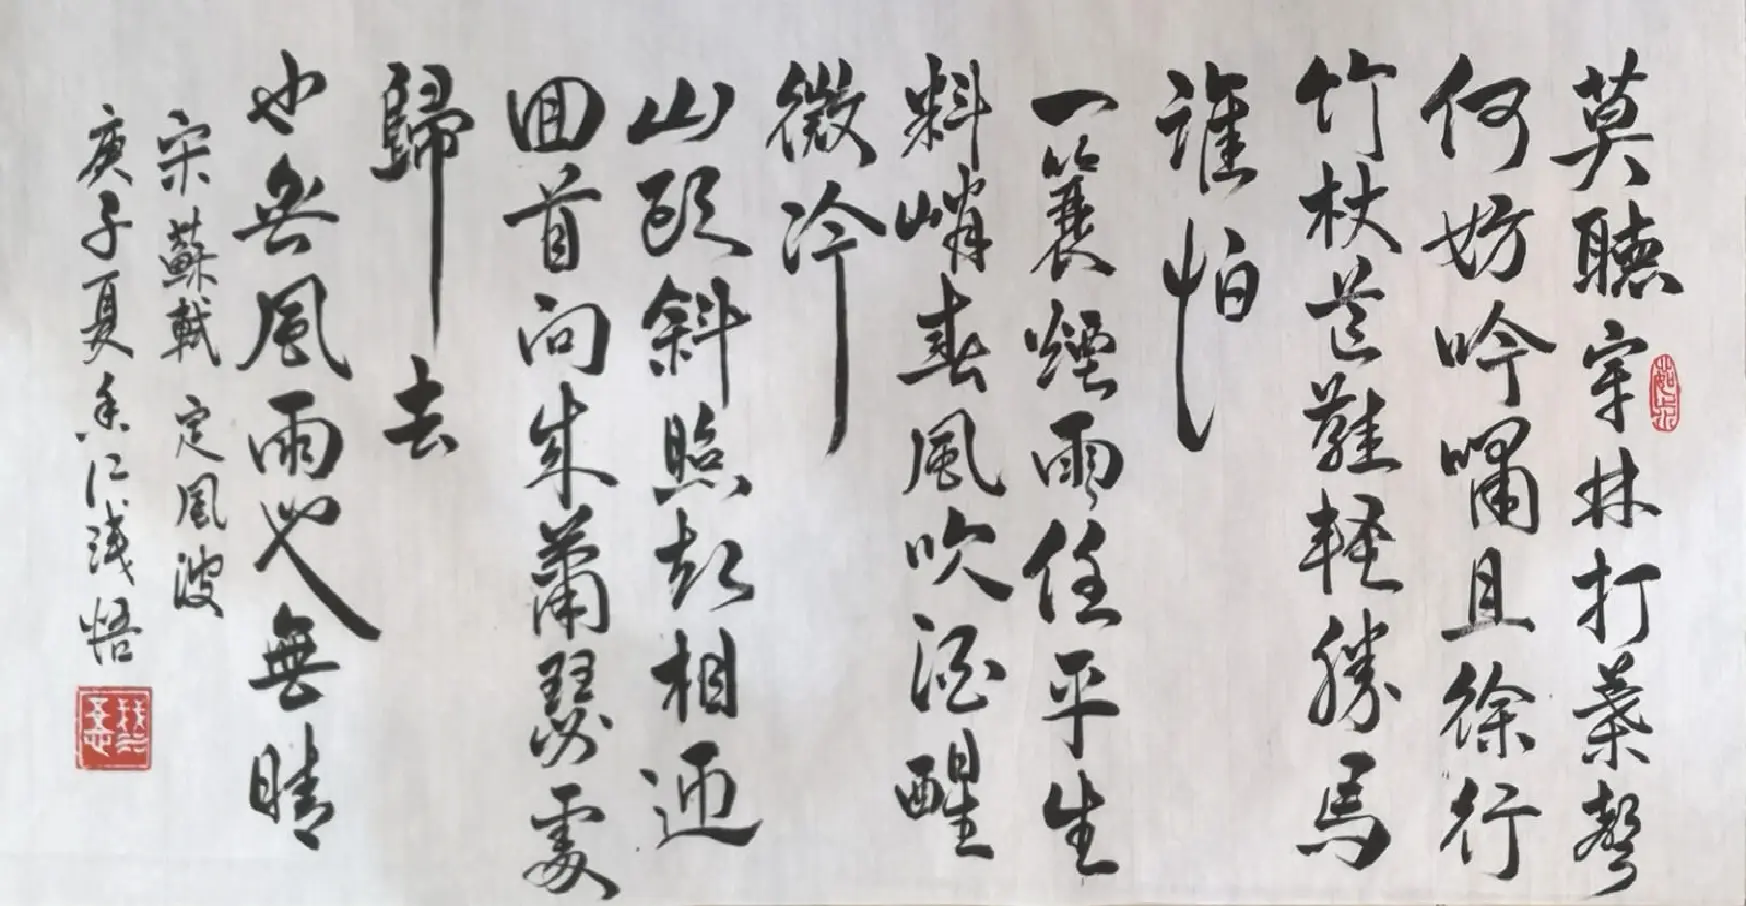 莫聽穿林打葉聲
何妨吟嘯且徐行
竹杖芒鞋輕勝馬
誰怕
一蓑煙雨任平生
料峭春風吹酒醒
微冷
山頭斜照却相迎
回首向來蕭瑟處
歸去
也無風雨也無晴
宋蘇軾定風波
庚子夏仁浅悟